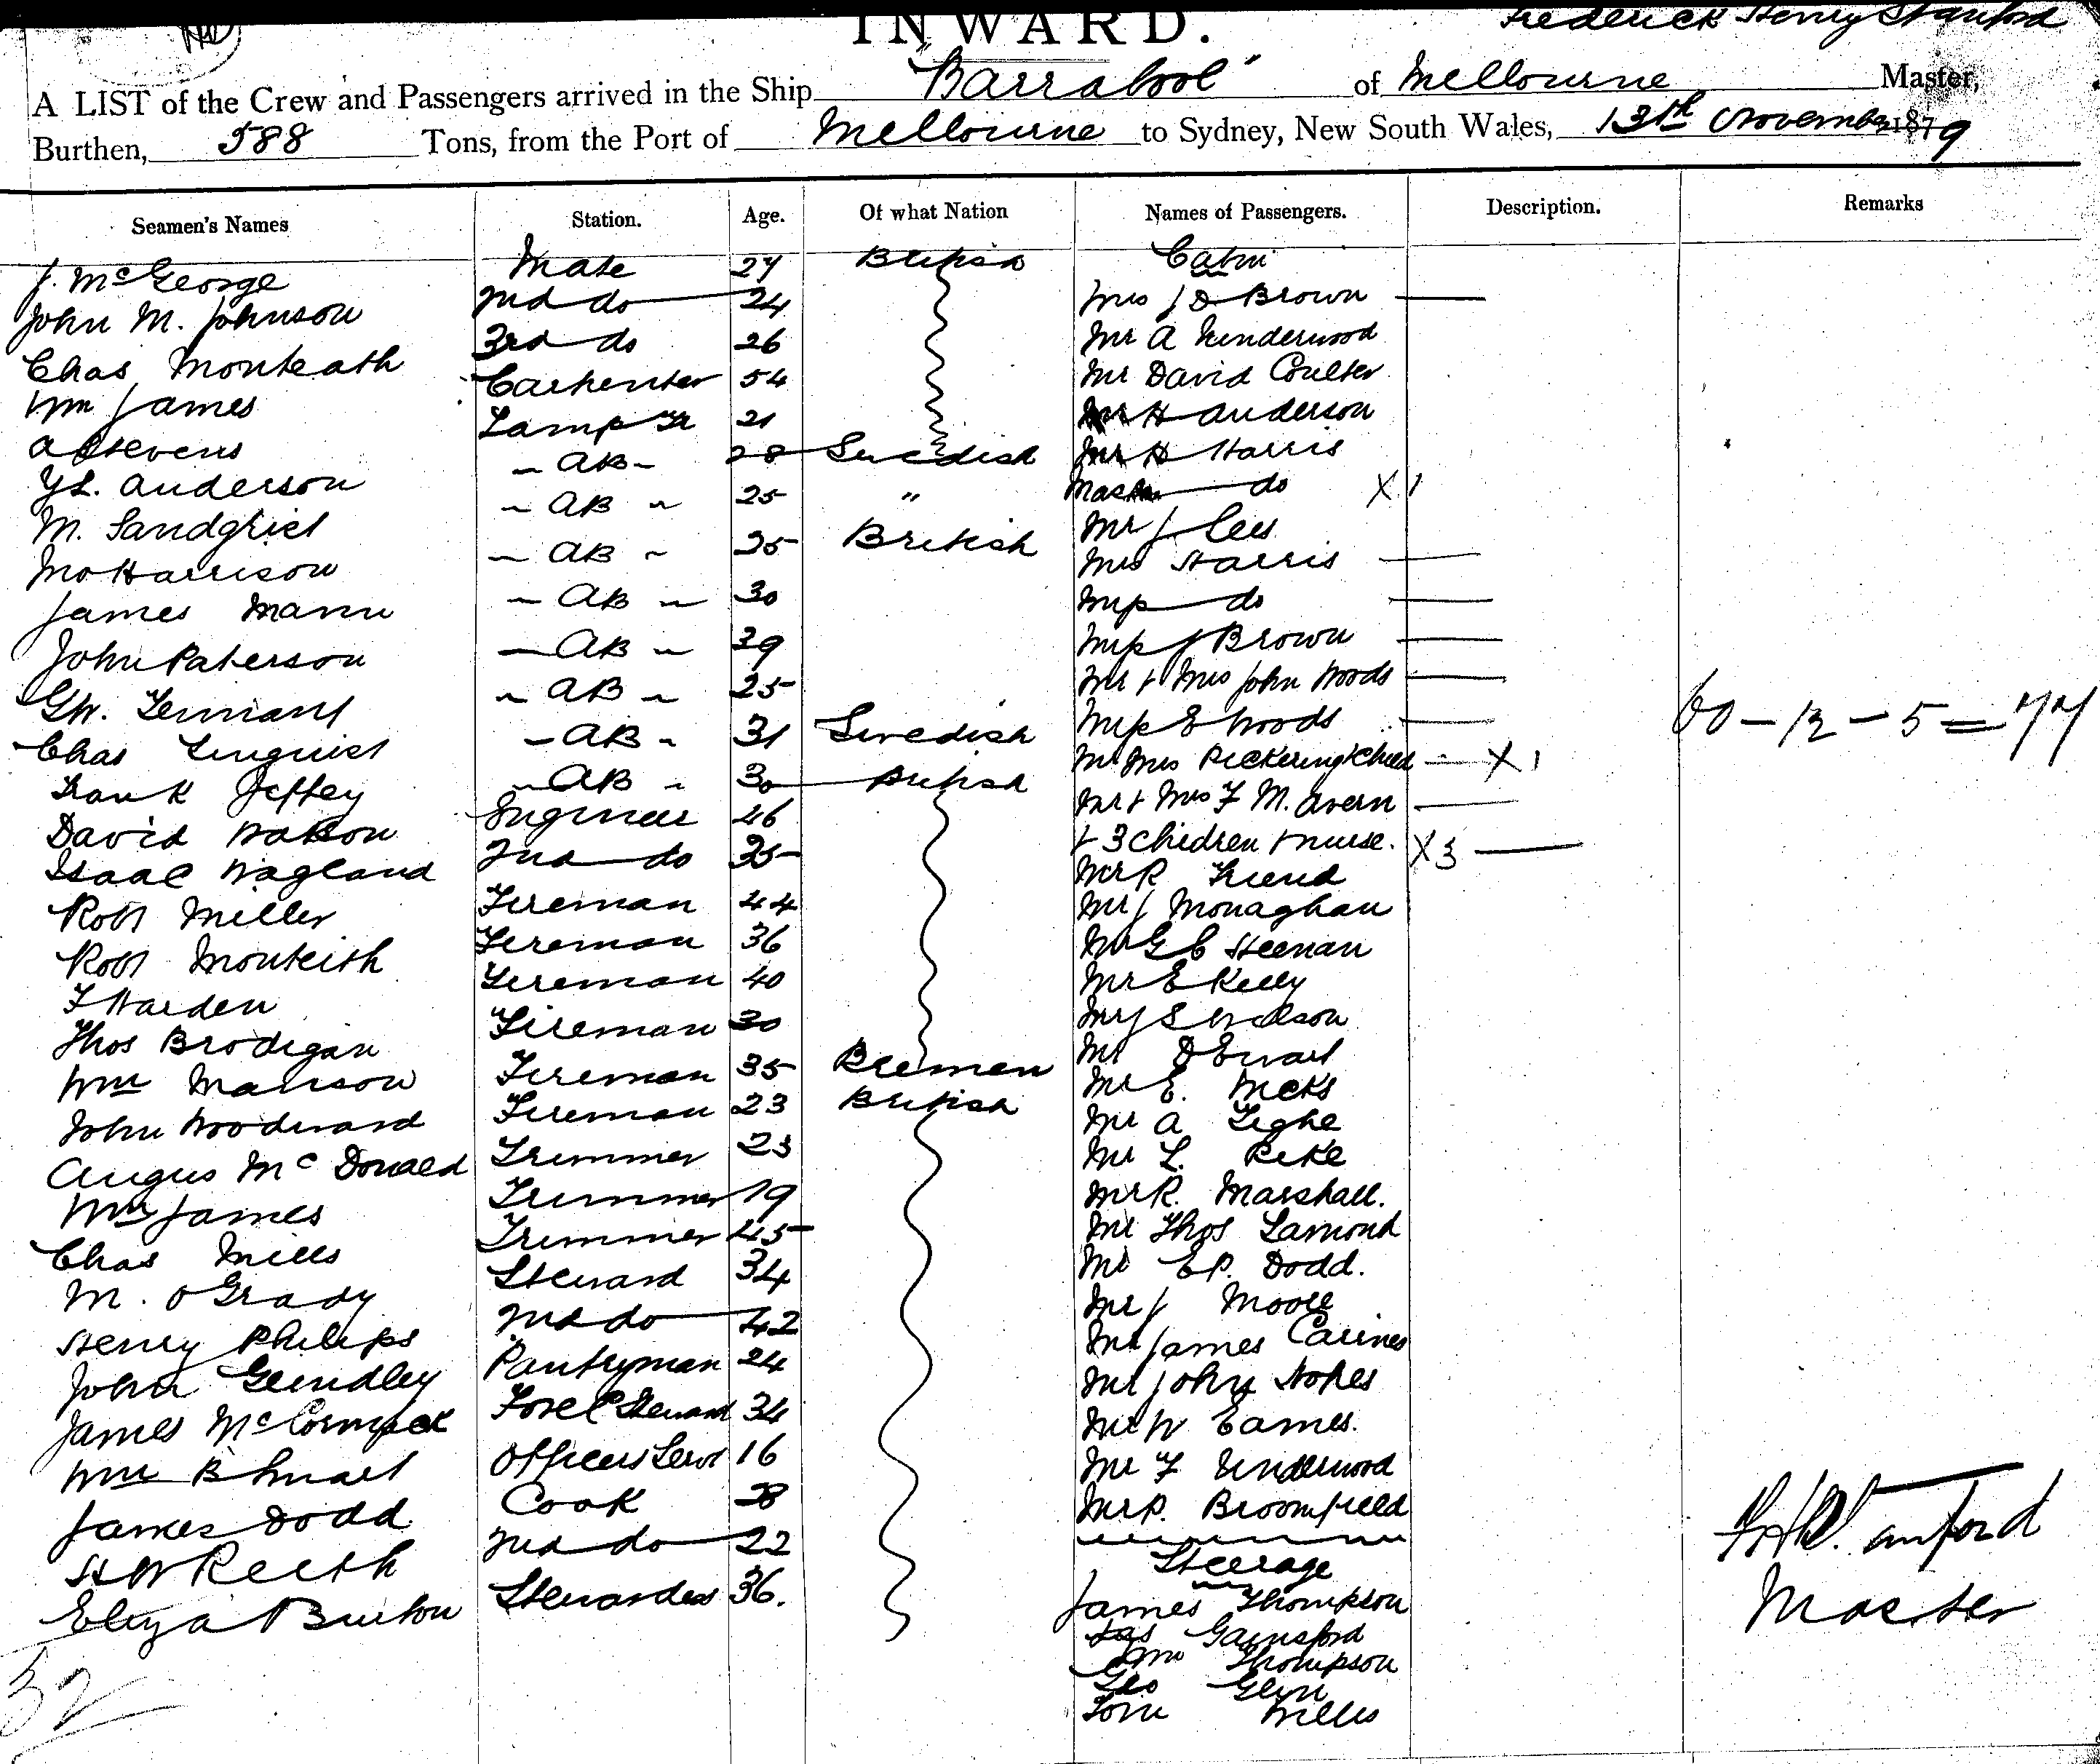 INWARD.
Frederick Henry Stanford
A LIST of the Crew and Passengers arrived in the Ship "Barrabool" of Melbourne Master,
Burthen, 588 Tons, from the Port of Melbourne to Sydney, New South Wales, 13th November 1879
Seamen's Names Station. Age. Of what Nation Names of Passengers. Description. Remarks
J. McGeorge Mate 27 British Cabin
John M. Johnson 2nd do 24 Mrs J D Brown
Chas Monteath 3rd do 26 Mr A Underwood
Wm James Carpenter 54 Mr David Coulter
A Stevens Lamp Tr 21 Mr H Anderson
Anderson AB 28 Swedish Mr H Harris
M. AB 25 " Master do X 1
Jno Harrison AB 25 British Mr J Lees
James Mann AB 30 Mrs Harris
John Paterson AB 39 Miss do
GW. Tennant AB 25 Miss J Brown
Chas Linquist AB 31 Swedish Mr & Mrs John Woods
Frank Jeffey AB 30 British Miss E Woods
David Watson Engineer 46 Mr Mrs Pickering & Child X 1
Isaac Wagland 2nd do 35 Mr & Mrs F M. Avern
Robt Miller Fireman 44 & 3 Children & nurse. X3
Robt Monteith Fireman 36 Mr R Friend
F Harden Fireman 40 Mr J Monaghan
Thos Brodigan Fireman 30 Mr G C Heenan
Wm Manson Fireman 35 Bremen Mr E Kelly
John Woodward Fireman 23 British Mr J S Wilson
Angus McDonald Trimmer 23 Mr D Ewart
Wm James Trimmer 19 Mr E.
Chas Mills Trimmer 45 Mr A Tighe
M. O Grady Steward 34 Mr L. Pike
Henry Philips 2nd do 42 Mr R. Marshall.
John Grindley Pantryman 24 Mr Thos Lamond
James McCormack Fore C Steward 34 Mr E P. Dodd.
Wm B Officers Servt 16 Mr J Moore
James Dodd Cook 28 Mr James Carines
H W Reith 2nd do 22 Mr John Nokes
Eliza Burton Stewardess 36. Mr W Eames.
Mr F Underwood
Mr P. Broomfield
Steerage
James Thompson
Jas Gainsford
Wm Thompson
Geo Glyn
Tom Willis
60 - 12 - 5 = 77
F H Stanford
Master
32